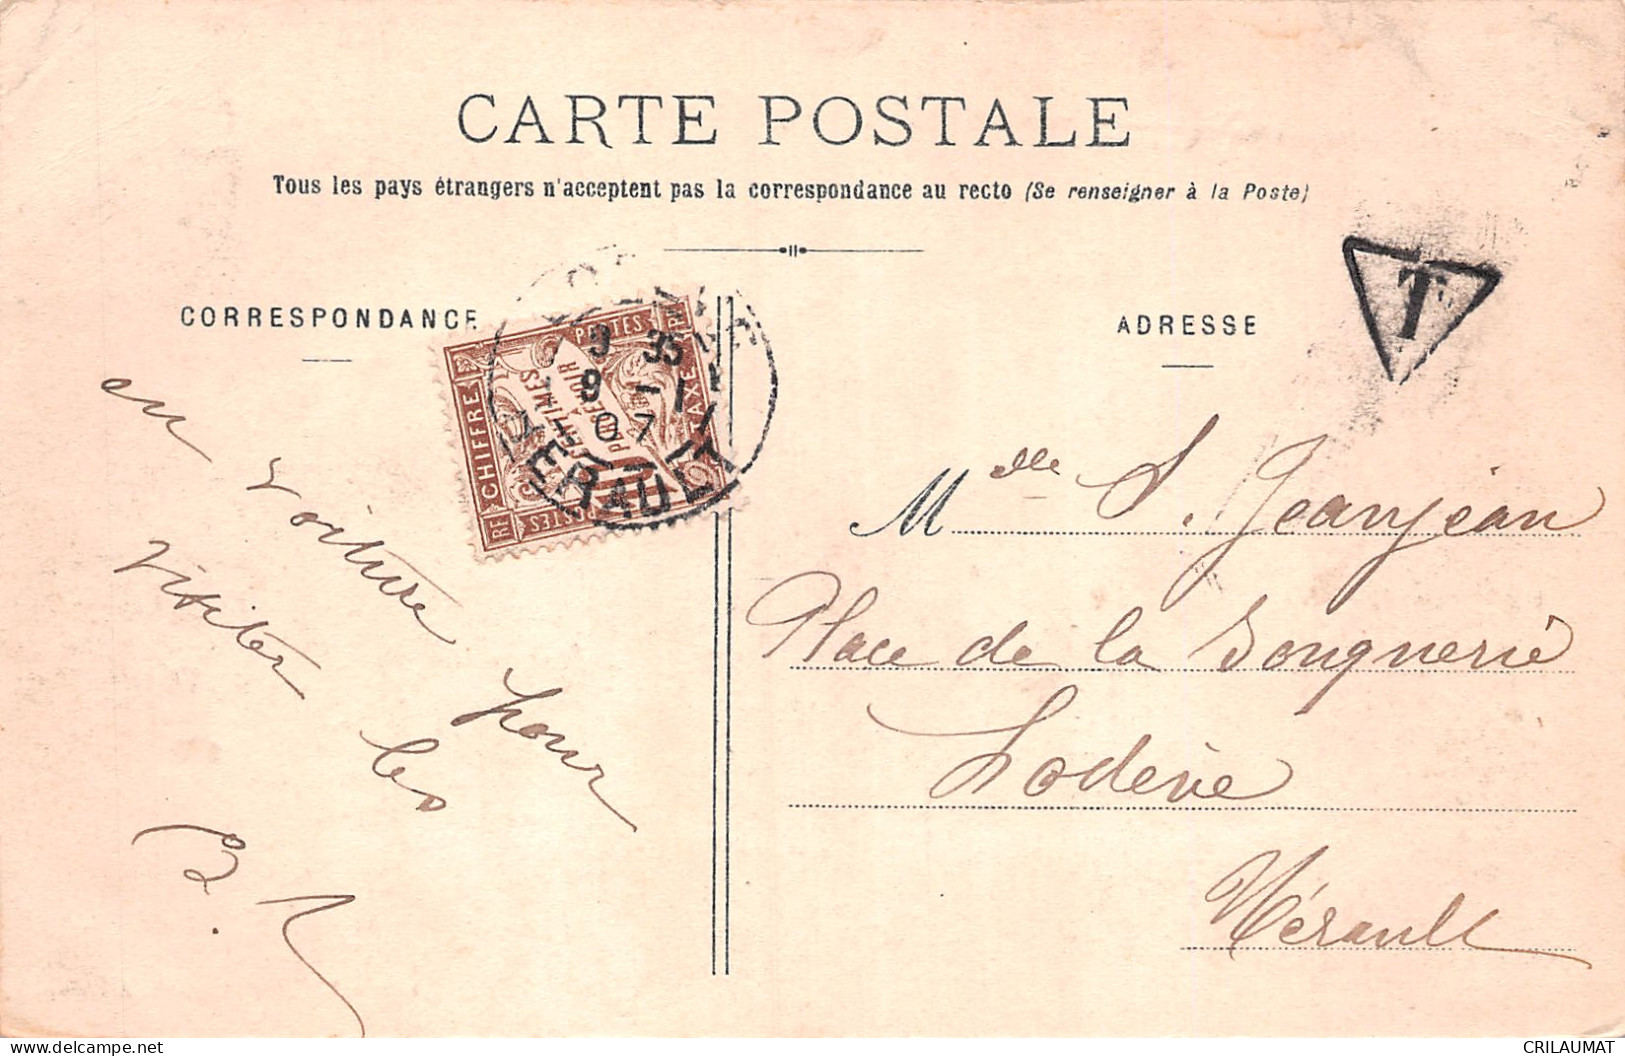 CARTE POSTALE
Tous les pays étrangers n'acceptent pas la correspondance au recto (Se renseigner à la Poste)
CORRESPONDANCE
ADRESSE
T
CHIFFRE
TAXE
POSTES
POSTES
RF
CENTIMES
À
PERCEVOIR
3 35
9 -1
07
HERAULT
en voiture pour
visiter les
Mdlle S. Jeanjean
Place de la Bouquerie
Lodève
Hérault
CRILAUMAT